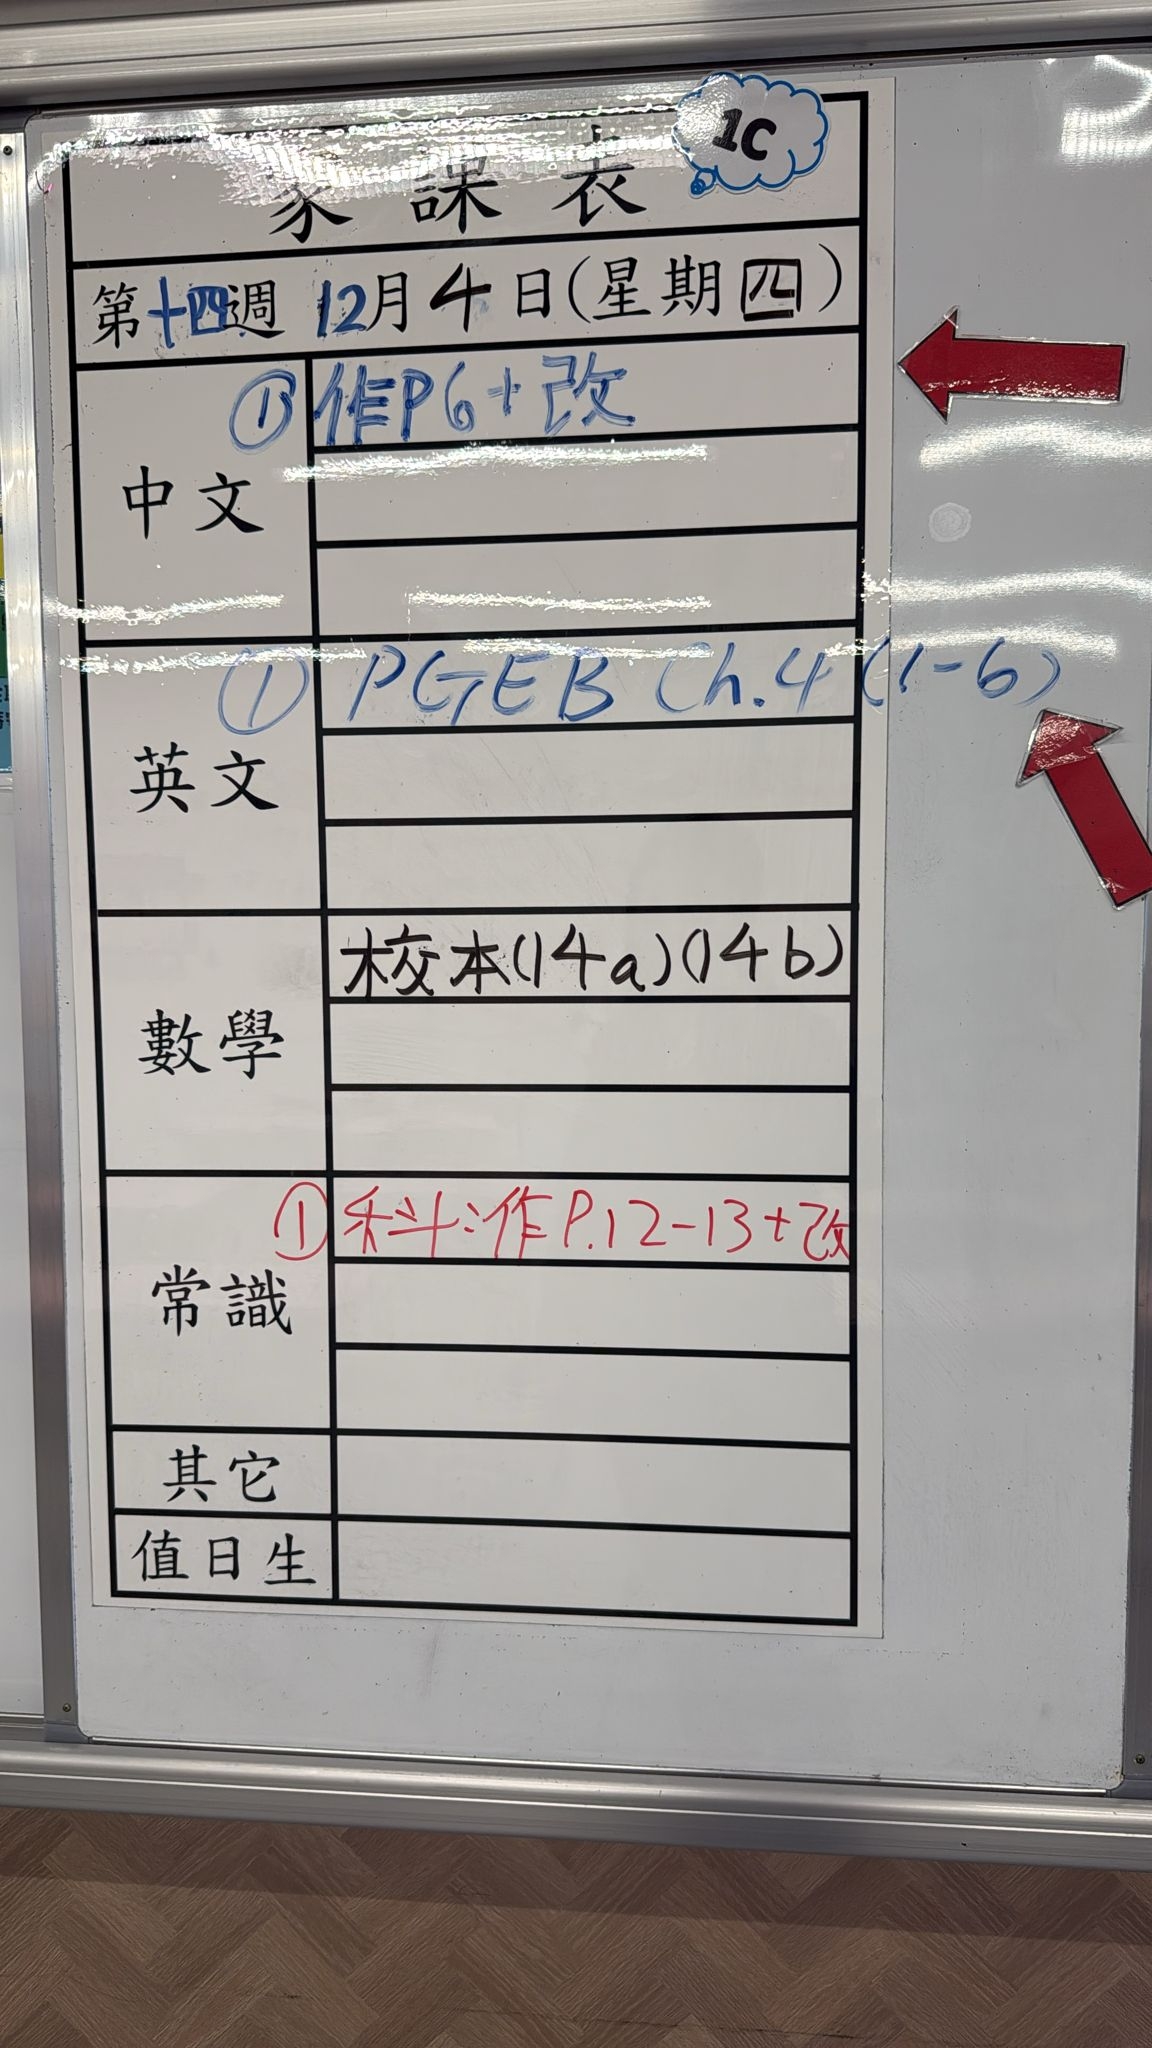 1C
家課表
第十四週 12月4日(星期四)
中文
① 作P6+改
英文
① PGEB Ch.4 (1-6)
數學
校本(14a)(14b)
常識
① 科:作P.12-13+改
其它
值日生